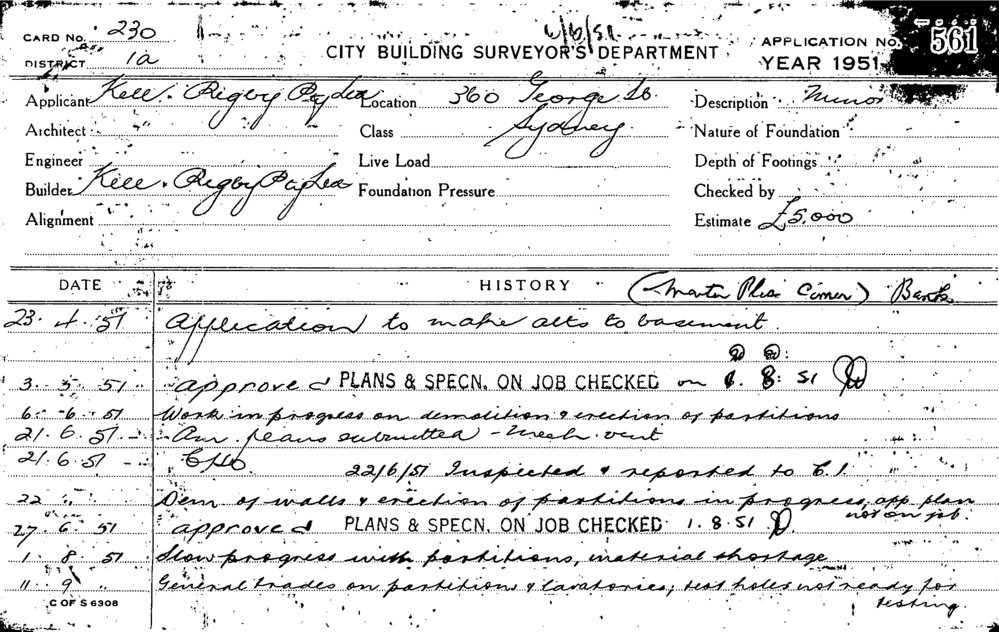 CARD No. 230
6/6/51
CITY BUILDING SURVEYOR'S DEPARTMENT
APPLICATION No. 561
DISTRICT 1a
YEAR 1951
Applicant Kell & Rigby Pty Ltd Location 360 George St. Description Minor
Architect Class Sydney Nature of Foundation
Engineer Live Load Depth of Footings
Builder Kell & Rigby Pty Ltd Foundation Pressure Checked by
Alignment Estimate £5,000
DATE HISTORY (Martin Place Corner) Bank
23 4 51 Application to make alts to basement.
3 5 51 approved PLANS & SPECN. ON JOB CHECKED on 1. 8: 51
6 6 51 Work in progress on demolition & erection of partitions
21. 6. 51. Am. plans submitted - Mech. vent
21. 6. 51 CHO 22/6/51 Inspected & reported to C.I.
22 " " Dem of walls & erection of partitions in progress, app. plan
not on job.
27 6 51 approved PLANS & SPECN. ON JOB CHECKED 1. 8. 51
1 8 51 Slow progress with partitions, material shortage
11 9 " General trades on partitions & lavatories; test holes not ready for
testing.
C OF S 6308